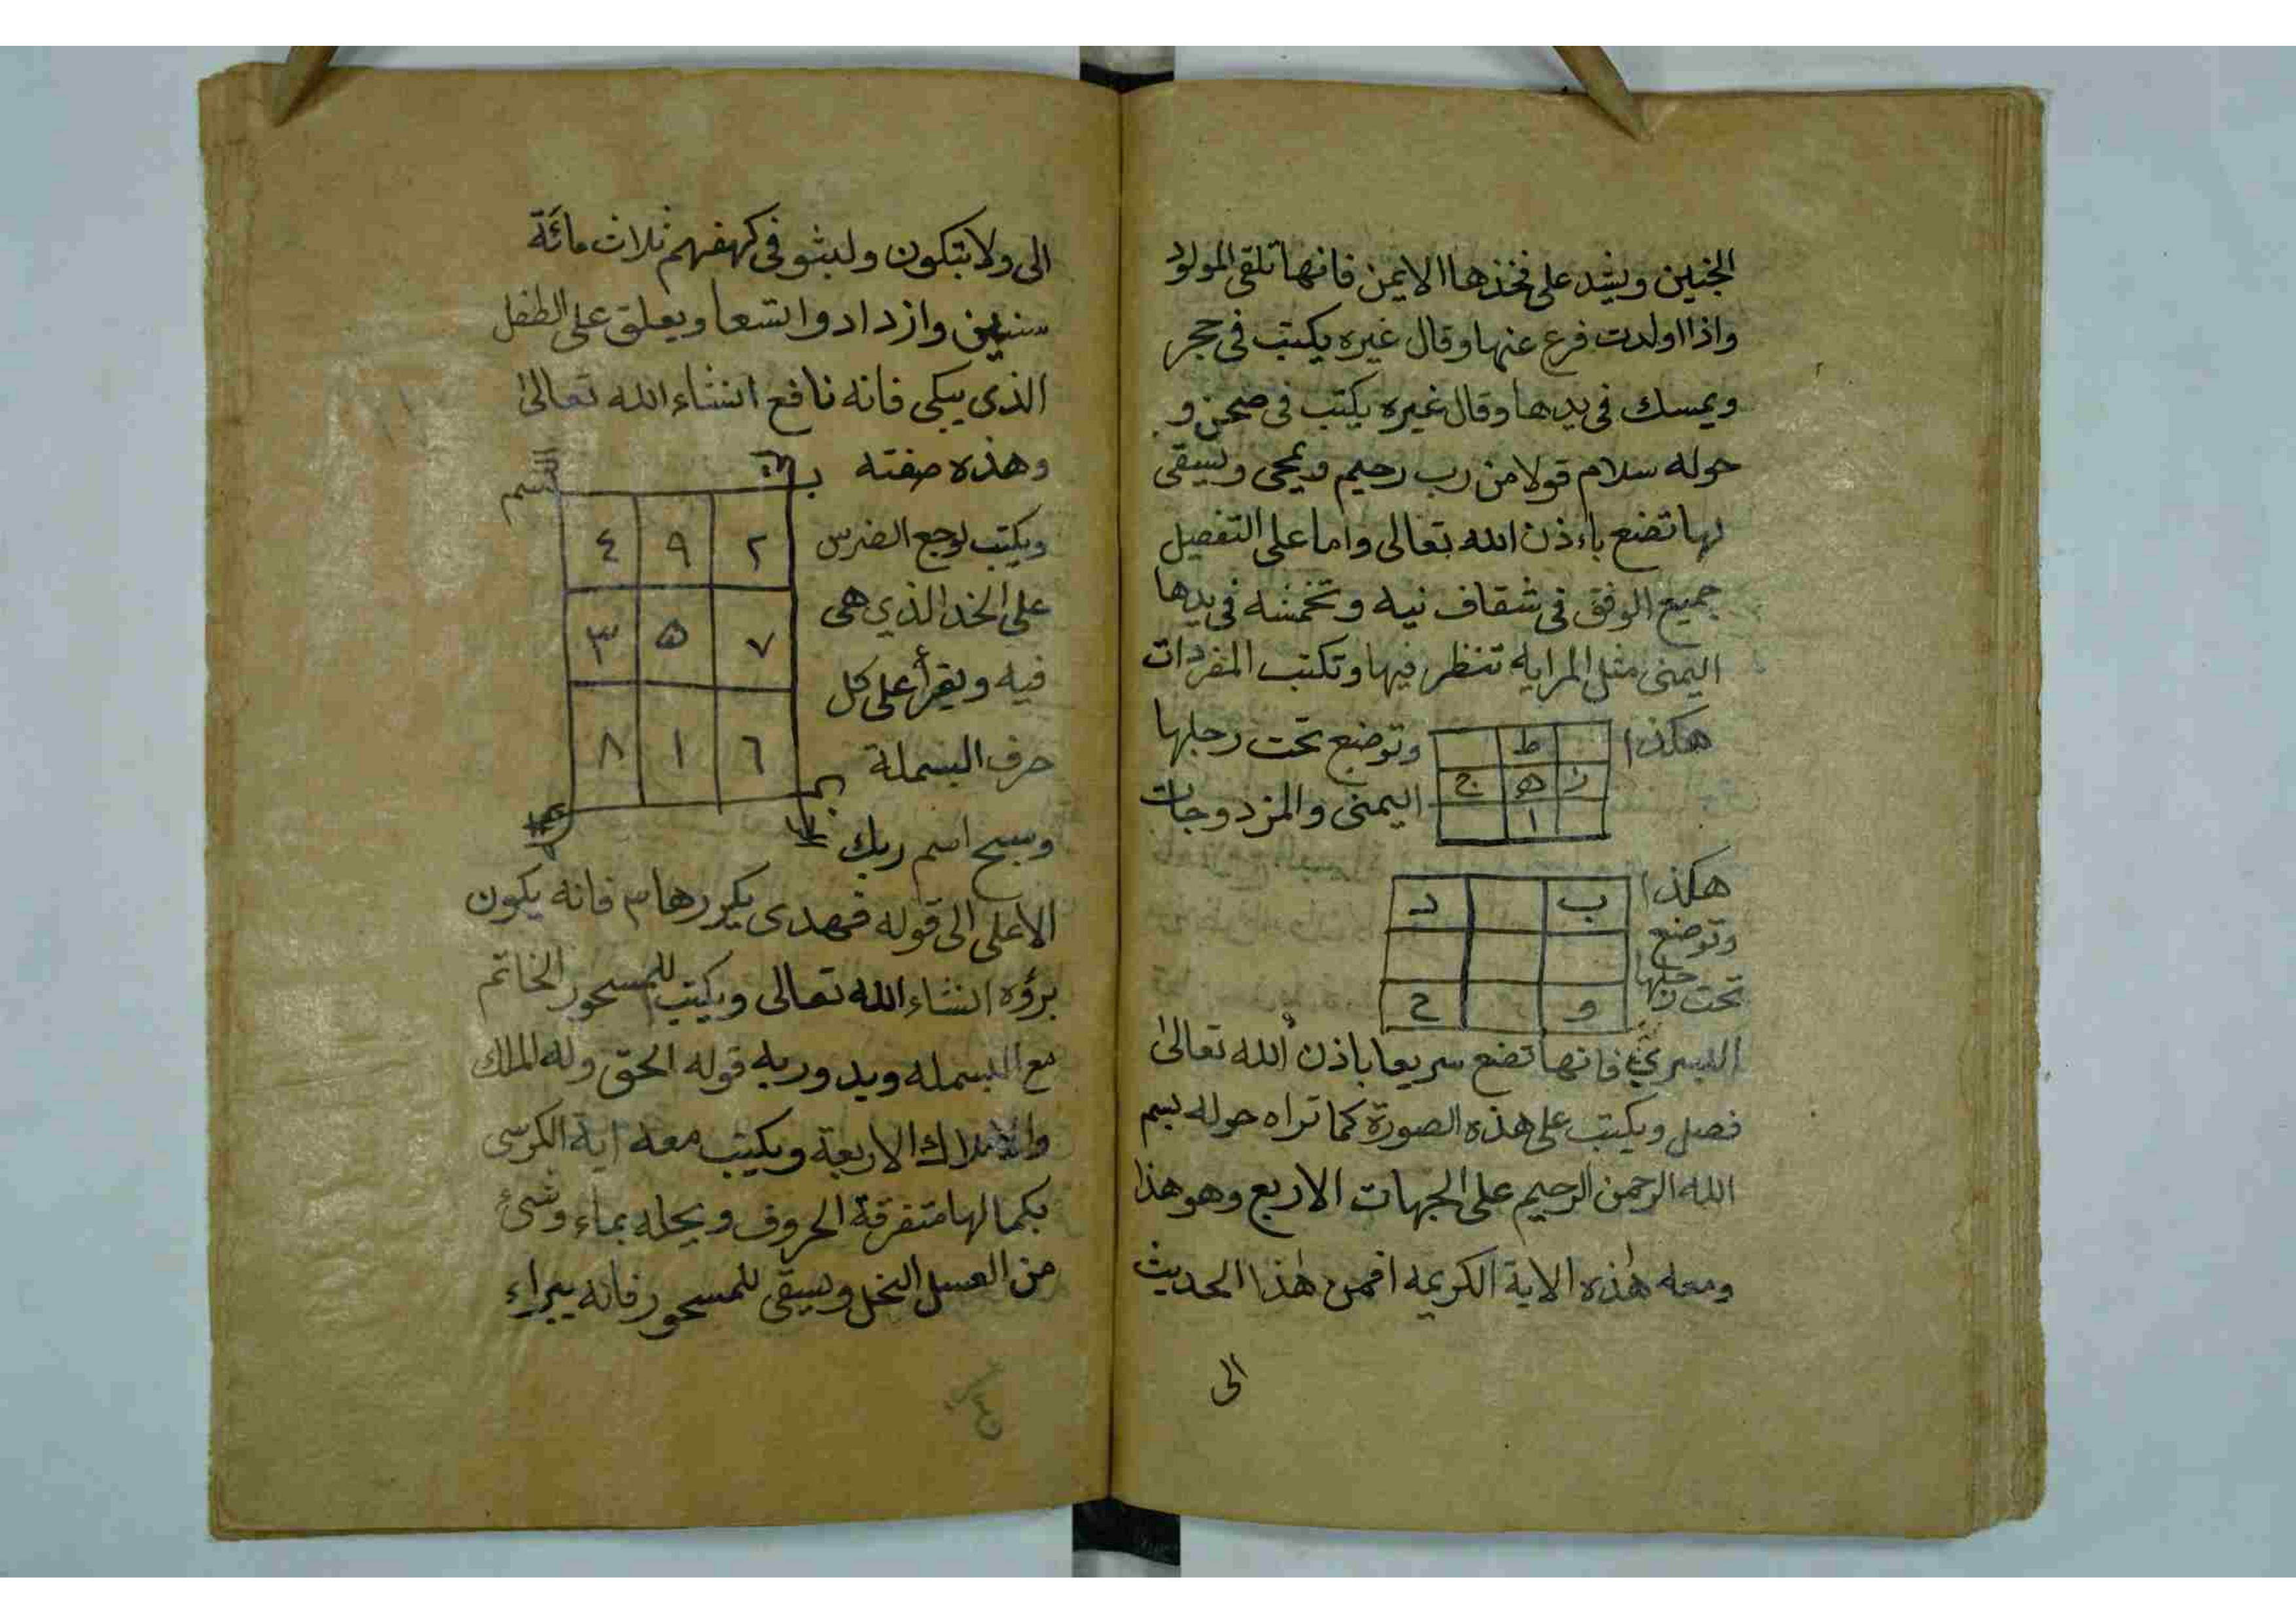 الجنين ويشد على فخذها الايمن فانها تلقى المولود
واذا اولدت فرع عنها وقال غيره يكتب فى حجر
ويمسك فى يدها وقال غيره يكتب فى صحن و
حوله سلام قولا من رب رحيم ويمحى ويسقى
لها تضع باءذن الله تعالى واما على التفصيل
جميع الوفق فى شقاف نيه فى يدها
اليمنى مثل المرايه تنظر فيها وتكتب المفردات
هكذا
ط
ز ه ج
ا
وتوضع تحت رجلها
اليمنى والمزدوجات
هكذا
ب د
و ح
وتوضع
تحت رجلها
اليسرى فانها تضع سريعا باذن الله تعالى
فصل ويكتب على هذه الصورة كما تراه حوله بسم
الله الرحمن الرحيم على الجهات الاربع وهو هذا
ومعه هذه الاية الكريمه افمن هذا الحديث
الى
الى ولا تبكون ولبثو فى كهفهم ثلاث مائة
سنين وازدادوا تسعا ويعلق على الطفل
الذى يبكى فانه نافع انشاء الله تعالى
وهذه صفته
بسم
٢ ٩ ٤
٧ ٥ ٣
٦ ١ ٨
ويكتب لوجع الضرس
على الخد الذي هى
فيه ويقرأ على كل
حرف البسملة
وسبح اسم ربك
الاعلى الى قوله فهدى يكررها ٣ فانه يكون
برؤه انشاء الله تعالى ويكتب للمسحور الخاتم
مع البسمله ويدور به قوله الحق وله الملك
والاملاك الاربعة ويكتب معه اية الكرسى
بكمالها متفرقة الحروف ويحله بماء وشئ
من العسل النحل ويسقى للمسحور فانه يبراء